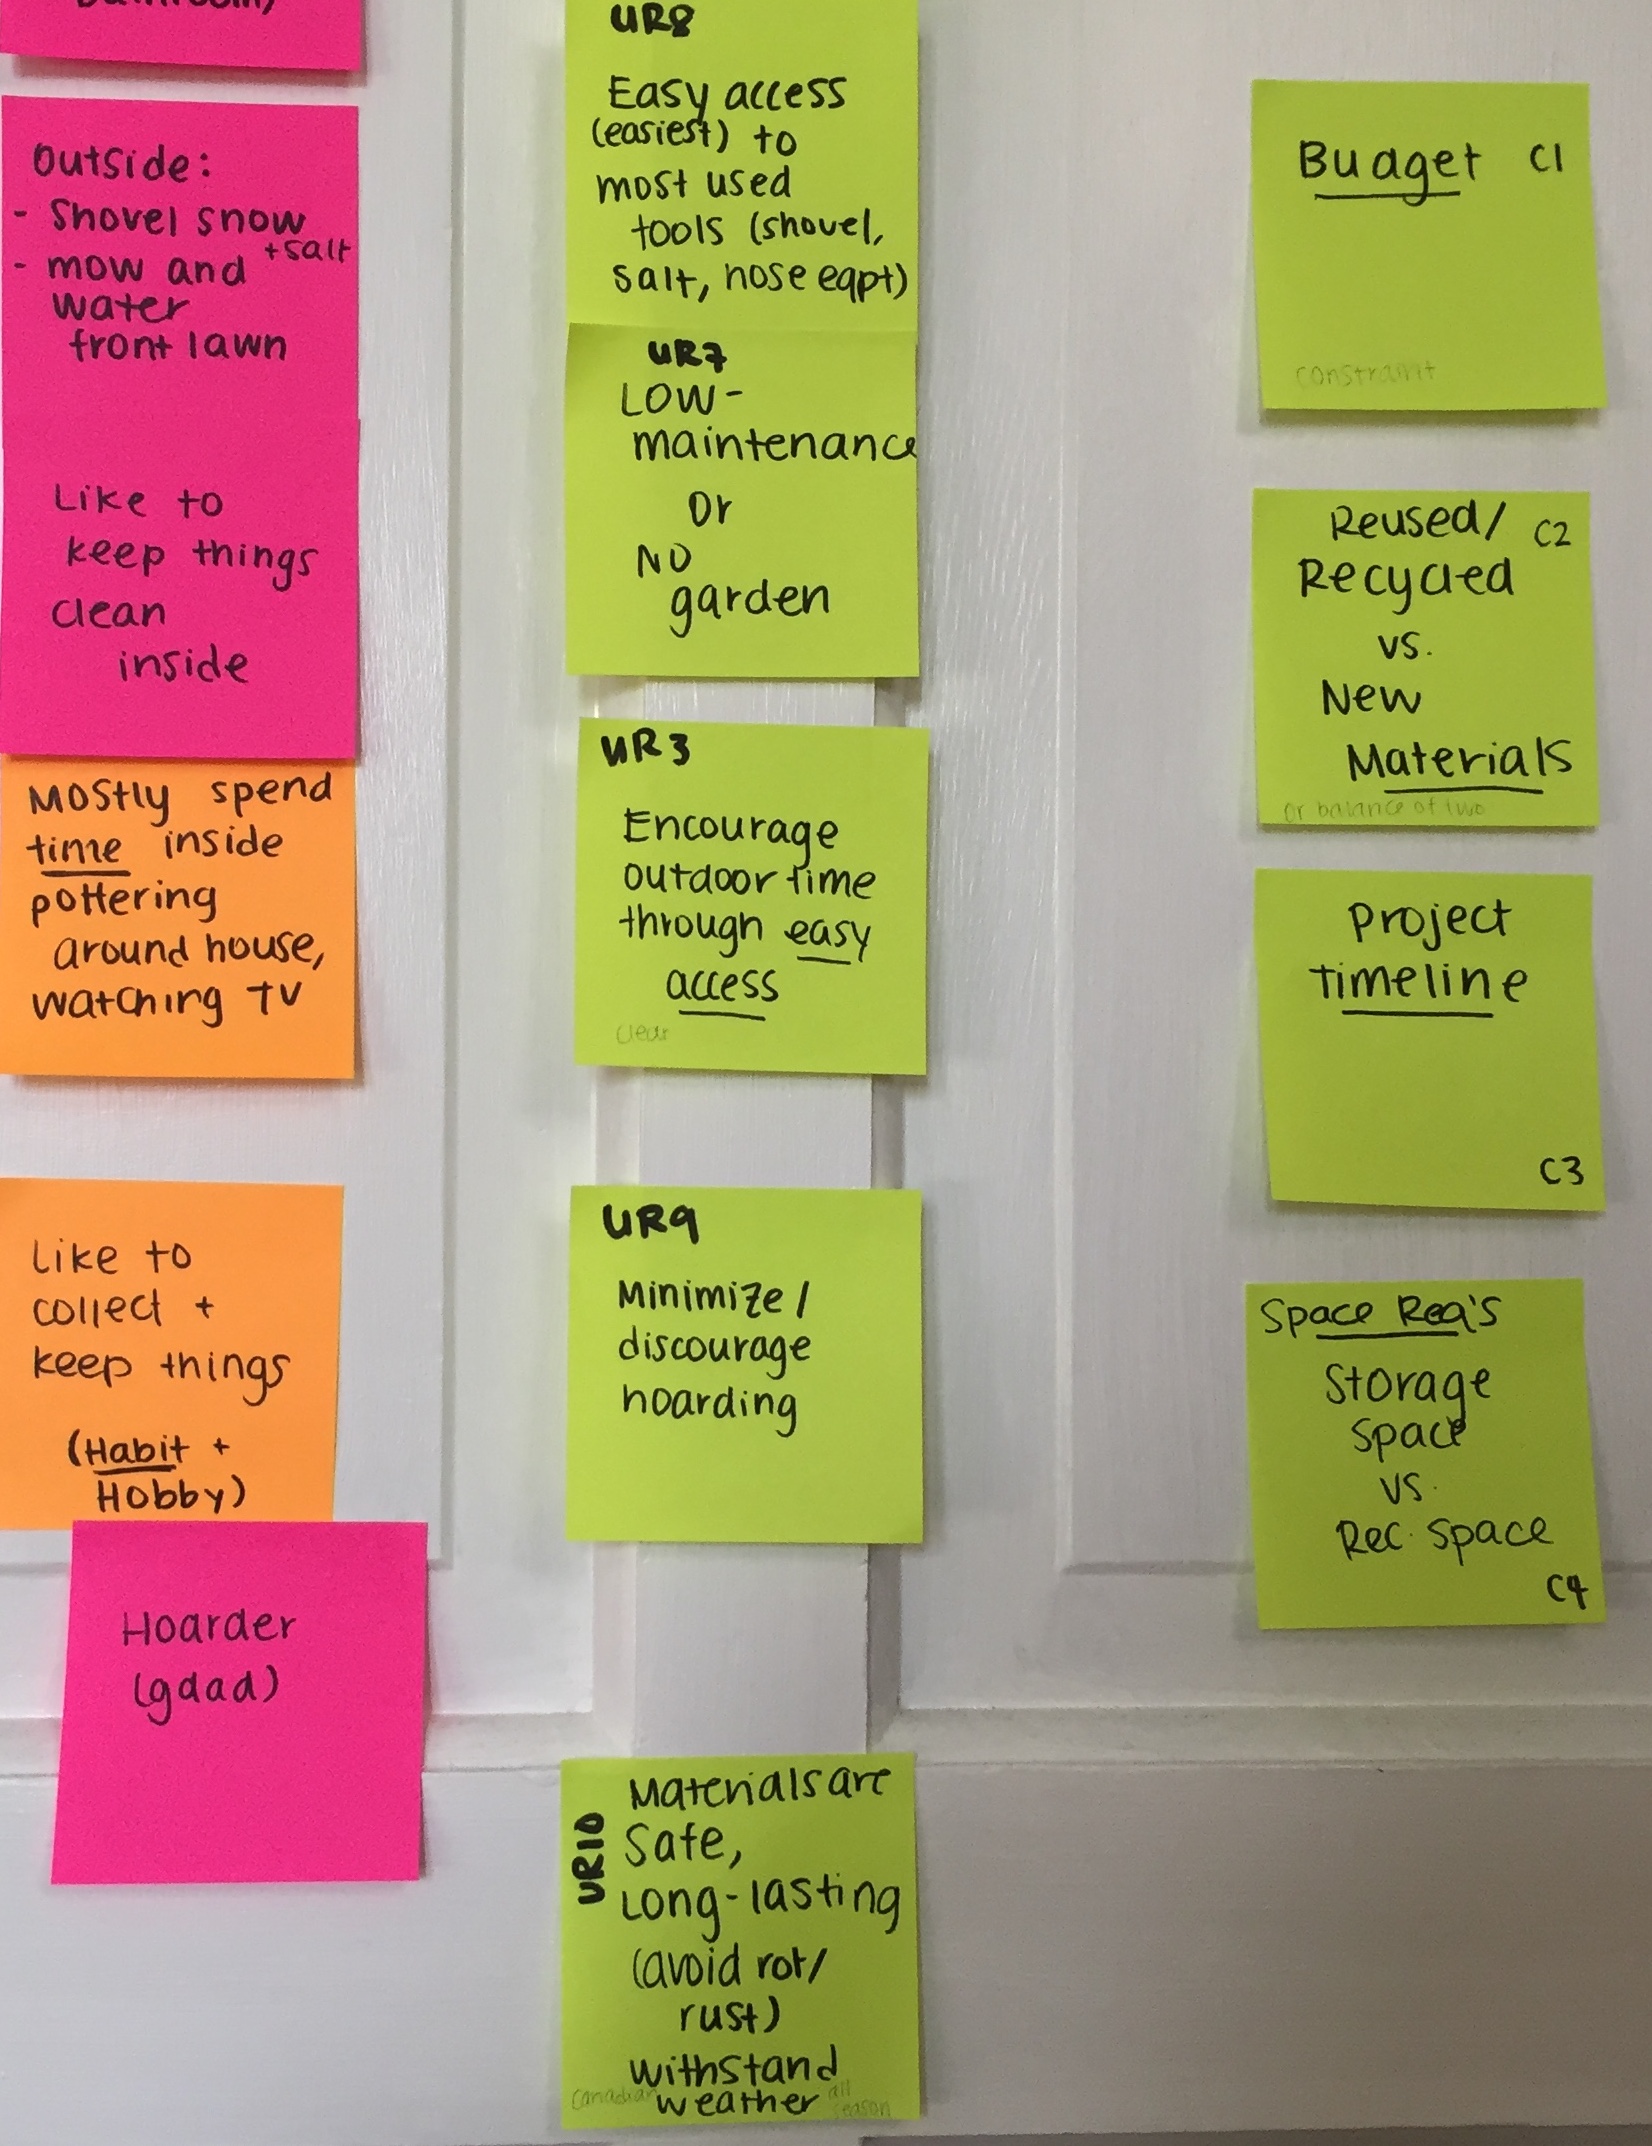 Outside:
- Shovel snow
+ salt
- mow and
water
front lawn
Like to
keep things
clean
inside
Mostly spend
time inside
pottering
around house,
watching TV
Like to
collect +
keep things
(Habit +
Hobby)
Hoarder
(gdad)
UR8
Easy access
(easiest) to
most used
tools (shovel,
salt, hose eqpt)
UR7
Low-
maintenance
Or
NO
garden
UR3
Encourage
outdoor time
through easy
access
clear
UR9
Minimize /
discourage
hoarding
UR10
Materials are
Safe,
Long-lasting
(avoid rot/
rust)
withstand
Canadian weather all
season
Budget C1
constraint
Reused/ C2
Recycled
vs.
New
Materials
or balance of two
Project
timeline
C3
Space Req's
Storage
Space
vs.
Rec. Space
C4